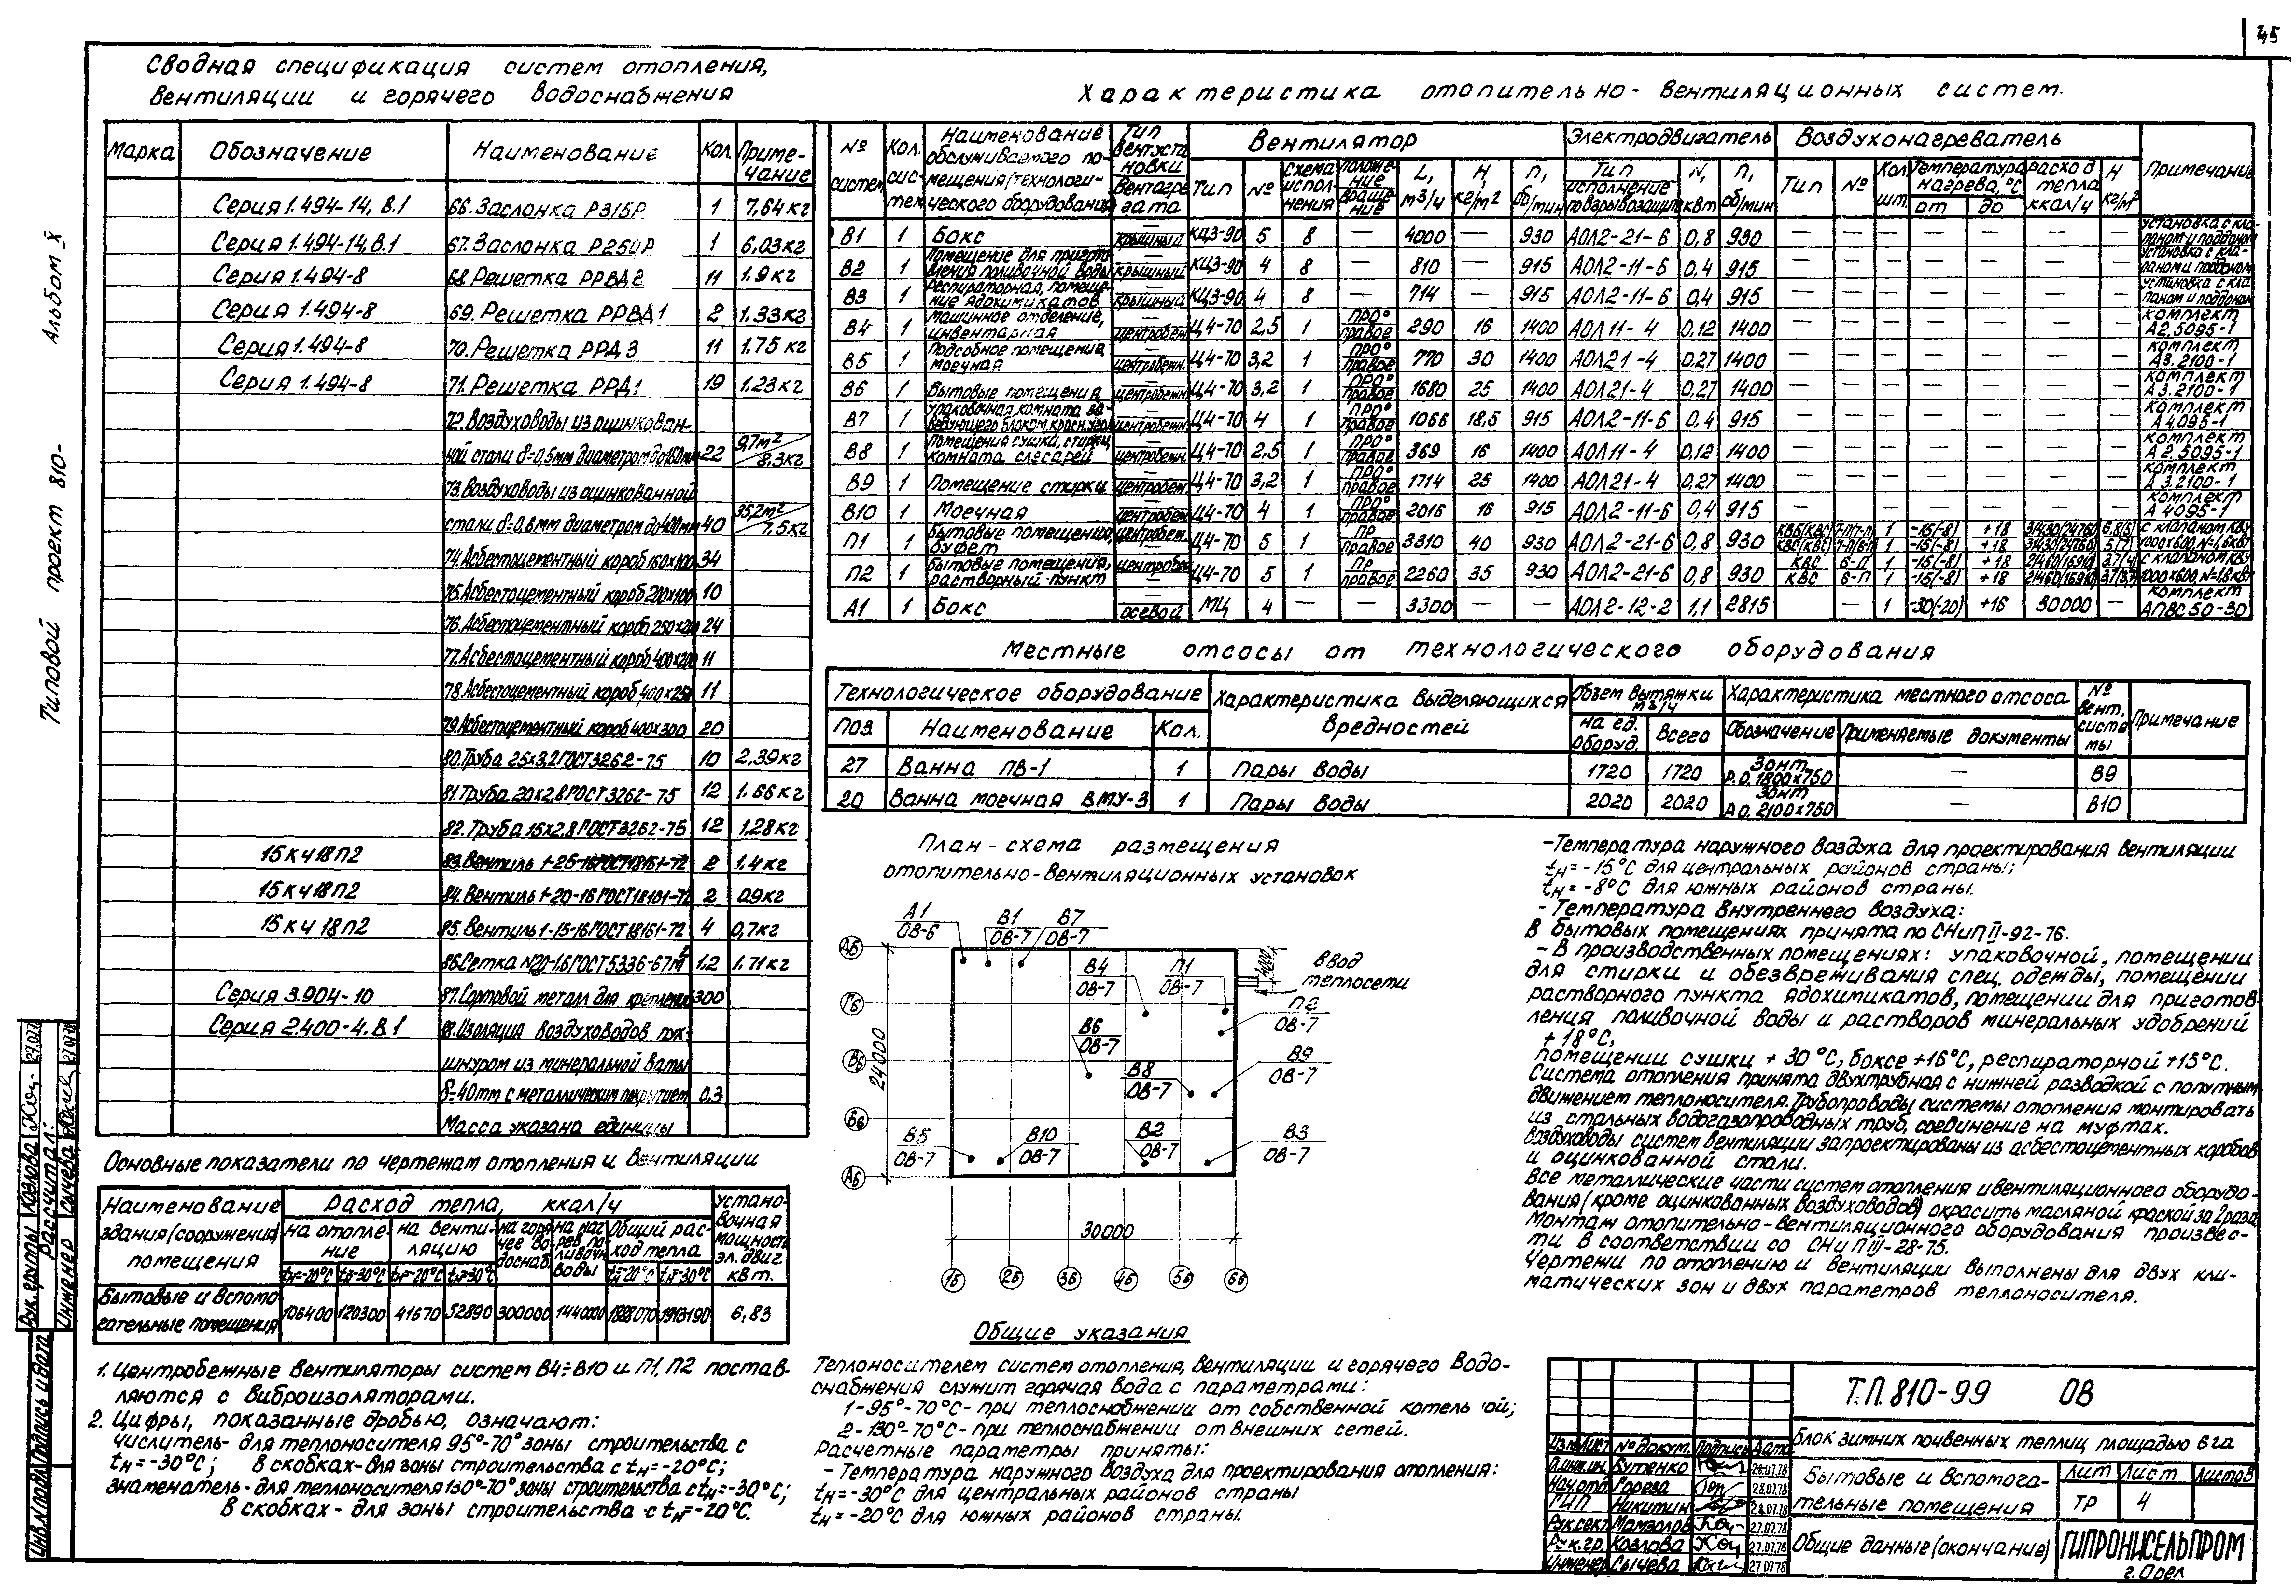 45
Альбом X
Типовой проект 810-
Сводная спецификация систем отопления,
вентиляции и горячего водоснабжения
Марка Обозначение Наименование Кол. Приме-
чание
Серия 1.494-14, В.1 66. Заслонка Р315Р 1 7,64 кг
Серия 1.494-14, В.1 67. Заслонка Р250Р 1 6,03 кг
Серия 1.494-8 68. Решетка РРВД2 11 1.9 кг
Серия 1.494-8 69. Решетка РРВД1 2 1.33 кг
Серия 1.494-8 70. Решетка РРД3 11 1.75 кг
Серия 1.494-8 71. Решетка РРД1 19 1.23 кг
72. Воздуховоды из оцинкован-
ной стали δ=0,5мм диаметром до 160мм 22 9,7м²/8,3кг
73. Воздуховоды из оцинкованной
стали δ=0,6мм диаметром до 400мм 40 35,2м²/7,5кг
74. Асбестоцементный короб 160×100 34
75. Асбестоцементный короб 200×100 10
76. Асбестоцементный короб 250×200 24
77. Асбестоцементный короб 400×200 11
78. Асбестоцементный короб 400×250 11
79. Асбестоцементный короб 400×300 20
80. Труба 25×3,2 ГОСТ 3262-75 10 2,39 кг
81. Труба 20×2,8 ГОСТ 3262-75 12 1.66 кг
82. Труба 15×2,8 ГОСТ 3262-75 12 1.28 кг
15кч18П2 83. Вентиль 1-25-16 ГОСТ 18161-72 2 1.4 кг
15кч18П2 84. Вентиль 1-20-16 ГОСТ 18161-72 2 0.9 кг
15кч18П2 85. Вентиль 1-15-16 ГОСТ 18161-72 4 0,7 кг
86. Сетка N20-1.6 ГОСТ 5336-67 м² 1.2 1.71 кг
Серия 3.904-10 87. Сортовой металл для крепления 300
Серия 2.400-4. В.1 88. Изоляция воздуховодов пух-
шнуром из минеральной ваты
δ=40мм с металлическим покрытием 0,3
Масса указана единицы
Основные показатели по чертежам отопления и вентиляции
Наименование здания (сооружения) помещения Расход тепла, ккал/ч Устано-
вочная мощность эл. двиг. квт.
на отопле-
ние на венти-
ляцию на горя-
чее во-
доснаб. на наг-
рев по-
ливочн. воды Общий рас-
ход тепла
tн=-20°С tн=-30°С tн=-20°С tн=-30°С tн=-20°С tн=-30°С
Бытовые и вспомо-
гательные помещения 106400 120300 41670 52890 300000 1440000 1888070 1913190 6,83
1. Центробежные вентиляторы систем В4÷В10 и П1, П2 постав-
ляются с виброизоляторами.
2. Цифры, показанные дробью, означают:
числитель- для теплоносителя 95°-70° зоны строительства с
tн=-30°С; в скобках- для зоны строительства с tн=-20°С;
знаменатель- для теплоносителя 130°-70° зоны строительства с tн=-30°С;
в скобках- для зоны строительства с tн=-20°С.
Характеристика отопительно-вентиляционных систем.
№ систем Кол. сис-
тем Наименование обслуживаемого по-
мещения (технологи-
ческого оборудования) Тип вентуста-
новки вентагре-
гата Вентилятор Электродвигатель Воздухонагреватель Примечание
Тип № Схема испол-
нения Положе-
ние враще-
ние L, м3/ч Н, кг/м² n, об/мин Тип исполнение по взрывозащите N, квт n, об/мин Тип № Кол. шт. Температура нагрева, °С от до расход тепла ккал/ч Н кг/м²
В1 1 Бокс — крышный КЦ3-90 5 8 — 4000 — 930 АОЛ2-21-6 0,8 930 — — — — — — — установка с кла-
паном и поддоном
В2 1 Помещение для пригото-
вления поливочной воды — крышный КЦ3-90 4 8 — 810 — 915 АОЛ2-11-6 0,4 915 — — — — — — — установка с кла-
паном и поддоном
В3 1 Респираторная, помеще-
ние ядохимикатов — крышный КЦ3-90 4 8 — 714 — 915 АОЛ2-11-6 0,4 915 — — — — — — — установка с кла-
паном и поддоном
В4 1 Машинное отделение, инвентарная — центробежн. Ц4-70 2,5 1 ПР0° правое 290 16 1400 АОЛ11-4 0,12 1400 — — — — — — — комплект А2.5095-1
В5 1 Подсобное помещение, моечная — центробежн. Ц4-70 3,2 1 ПР0° правое 770 30 1400 АОЛ21-4 0.27 1400 — — — — — — — комплект А3.2100-1
В6 1 Бытовые помещения — центробежн. Ц4-70 3,2 1 ПР0° правое 1680 25 1400 АОЛ21-4 0,27 1400 — — — — — — — комплект А3.2100-1
В7 1 Упаковочная, комната за-
ведующего блоком, красн. угол — центробежн. Ц4-70 4 1 ПР0° правое 1066 18,5 915 АОЛ2-11-6 0,4 915 — — — — — — — комплект А4.095-1
В8 1 Помещения сушки, стирки, комната слесарей — центробежн. Ц4-70 2,5 1 ПР0° правое 369 16 1400 АОЛ11-4 0.12 1400 — — — — — — — комплект А2.5095-1
В9 1 Помещение стирки — центробеж. Ц4-70 3,2 1 ПР0° правое 1714 25 1400 АОЛ21-4 0,27 1400 — — — — — — — комплект А3.2100-1
В10 1 Моечная — центробеж. Ц4-70 4 1 ПР0° правое 2016 16 915 АОЛ2-11-6 0,4 915 — — — — — — — комплект А4095-1
П1 1 Бытовые помещения, буфет центробеж. — Ц4-70 5 1 ПР правое 3310 40 930 АОЛ2-21-6 0,8 930 КВБ(КВС) 7-П(7-П) 1 -15(-8) +18 31430(24760) 6,8(5) с клапаном КВУ
КВС(КВС) 7-П(6-П) 1 -15(-8) +18 31430(24760) 5(7) 1000×600, N=1.6квт
П2 1 Бытовые помещения, растворный пункт центробеж. — Ц4-70 5 1 ПР правое 2260 35 930 АОЛ2-21-6 0,8 930 КВС 6-П 1 -15(-8) +18 21460(16910) 3.7(4) с клапаном КВУ
КВС 6-П 1 -15(-8) +18 21460(16910) 3.7(3,7) 1000×600, N=1.8квт
А1 1 Бокс — осевой МЦ 4 — — 3300 — — АОЛ2-12-2 1,1 2815 — 1 -30(-20) +16 30000 — комплект АПВС50-30
Местные отсосы от технологического оборудования
Технологическое оборудование Характеристика выделяющихся вредностей Объем вытяжки м3/ч Характеристика местного отсоса № вент. систе-
мы Примечание
Поз. Наименование Кол. на ед. оборуд. Всего Обозначение Применяемые документы
27 Ванна ПВ-1 1 Пары воды 1720 1720 Зонт Р.О. 1800×750 — В9
20 Ванна моечная ВМУ-3 1 Пары воды 2020 2020 Зонт А.О. 2100×750 — В10
План-схема размещения
отопительно-вентиляционных установок
А1 ОВ-6 В1 ОВ-7 В7 ОВ-7
В4 ОВ-7 П1 ОВ-7
4000 Ввод теплосети
П2 ОВ-7
В6 ОВ-7
В8 ОВ-7
В9 ОВ-7
В5 ОВ-7 В10 ОВ-7 В2 ОВ-7 В3 ОВ-7
Дб Гб Вб Бб Аб
24000
30000
1б 2б 3б 4б 5б 6б
Общие указания
Теплоносителем систем отопления, вентиляции и горячего водо-
снабжения служит горячая вода с параметрами:
1-95°-70°С- при теплоснабжении от собственной котельной;
2-130°-70°С- при теплоснабжении от внешних сетей.
Расчетные параметры приняты:
- Температура наружного воздуха для проектирования отопления:
tн=-30°С для центральных районов страны
tн=-20°С для южных районов страны.
-Температура наружного воздуха для проектирования вентиляции
tн=-15°С для центральных районов страны;
tн=-8°С для южных районов страны.
- Температура внутреннего воздуха:
В бытовых помещениях принята по СНиП II-92-76.
- В производственных помещениях: упаковочной, помещении
для стирки и обезвреживания спец. одежды, помещении
растворного пункта ядохимикатов, помещении для приготов-
ления поливочной воды и растворов минеральных удобрений
+18°С,
помещении сушки +30°С, боксе +16°С, респираторной +15°С.
Система отопления принята двухтрубная с нижней разводкой с попутным
движением теплоносителя. Трубопроводы системы отопления монтировать
из стальных водогазопроводных труб, соединение на муфтах.
Воздуховоды систем вентиляции запроектированы из асбестоцементных коробов
и оцинкованной стали.
Все металлические части систем отопления и вентиляционного оборудо-
вания (кроме оцинкованных воздуховодов) окрасить масляной краской за 2 раза.
Монтаж отопительно-вентиляционного оборудования произвес-
ти в соответствии со СНиП III-28-75.
Чертежи по отоплению и вентиляции выполнены для двух кли-
матических зон и двух параметров теплоносителя.
Т.П. 810-99 ОВ
Блок зимних почвенных теплиц площадью 6 га
Изм. Лист № докум. Подпись Дата
Бутенко 28.07.78
Нач.отд. Гореза 28.07.78
ГИП Никитин 28.07.78
Рук.сект. Мамзолов 27.07.78
Рук.гр. Козлова 27.07.78
Инженер Сычева 27.07.78
Бытовые и вспомога-
тельные помещения
Лит Лист Листов
ТР 4
Общие данные (окончание)
ГИПРОНИСЕЛЬПРОМ
г. Орел
Рук. группы Козлова 27.07.78
Рассчитал:
Инженер Сычева 27.07.78
Инв.№ подл. Подпись и дата